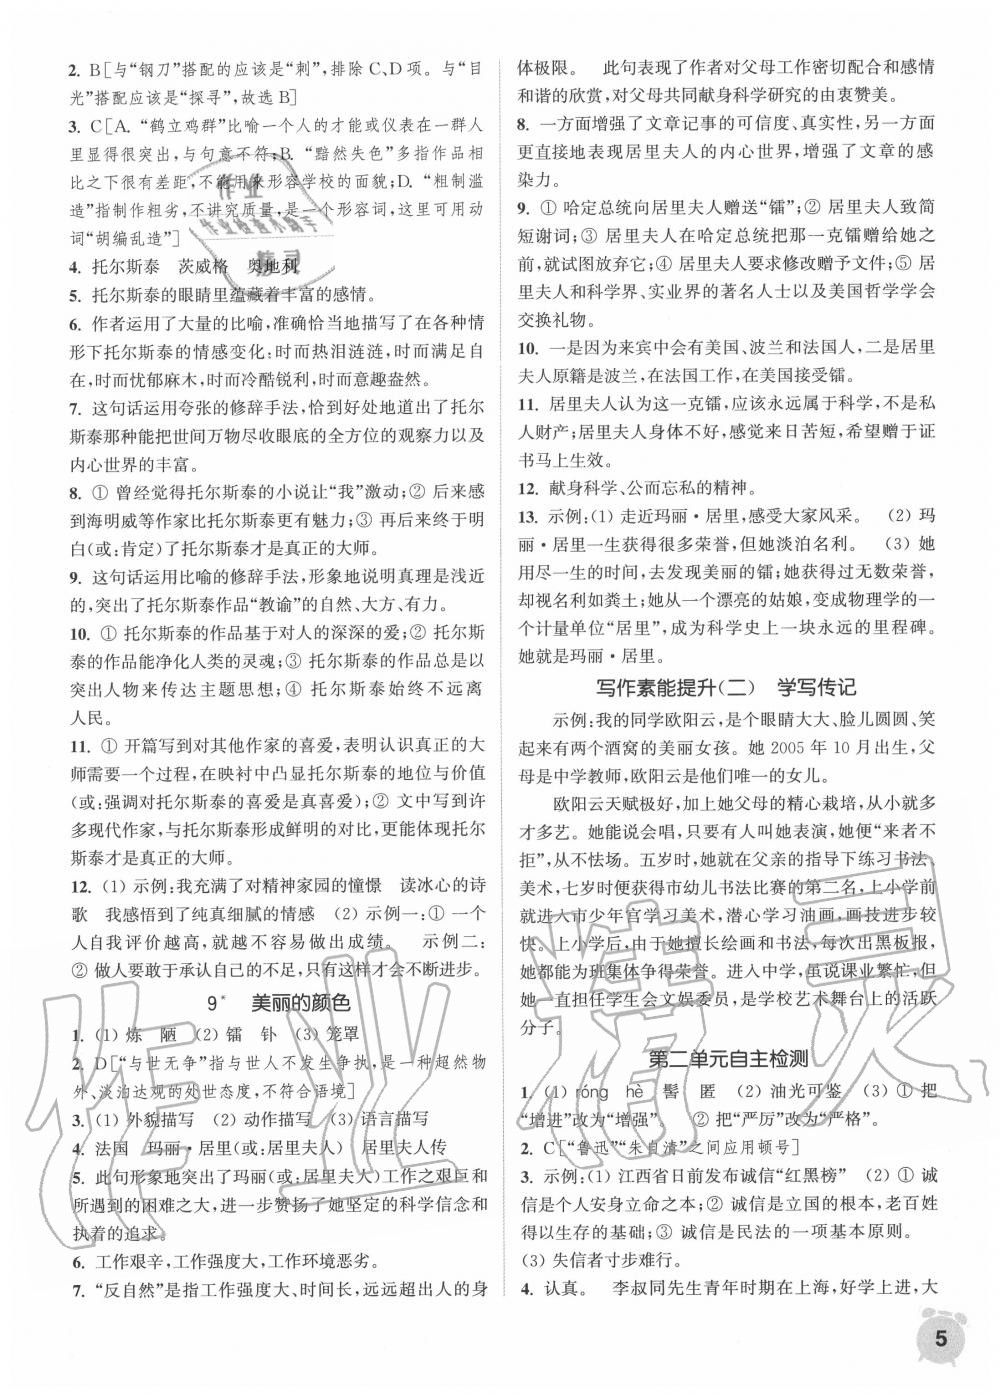 2. B[与“钢刀”搭配的应该是“刺”,排除C、D项。与“目
光”搭配应该是“探寻”,故选B]
3. C[A.“鹤立鸡群”比喻一个人的才能或仪表在一群人
里显得很突出,与句意不符;B.“黯然失色”多指作品相
比之下很有差距,不能用来形容学校的面貌;D.“粗制滥
造”指制作粗劣,不讲究质量,是一个形容词,这里可用动
词“胡编乱造”]
4. 托尔斯泰 茨威格 奥地利
5. 托尔斯泰的眼睛里蕴藏着丰富的感情。
6. 作者运用了大量的比喻,准确恰当地描写了在各种情
形下托尔斯泰的情感变化:时而热泪涟涟,时而满足自
在,时而忧郁麻木,时而冷酷锐利,时而意趣盎然。
7. 这句话运用夸张的修辞手法,恰到好处地道出了托尔
斯泰那种能把世间万物尽收眼底的全方位的观察力以及
内心世界的丰富。
8. ① 曾经觉得托尔斯泰的小说让“我”激动;② 后来感
到海明威等作家比托尔斯泰更有魅力;③ 再后来终于明
白(或:肯定)了托尔斯泰才是真正的大师。
9. 这句话运用比喻的修辞手法,形象地说明真理是浅近
的,突出了托尔斯泰作品“教谕”的自然、大方、有力。
10. ① 托尔斯泰的作品基于对人的深深的爱;② 托尔斯
泰的作品能净化人类的灵魂;③ 托尔斯泰的作品总是以
突出人物来传达主题思想;④ 托尔斯泰始终不远离
人民。
11. ① 开篇写到对其他作家的喜爱,表明认识真正的大
师需要一个过程,在映衬中凸显托尔斯泰的地位与价值
(或:强调对托尔斯泰的喜爱是真喜爱);② 文中写到许
多现代作家,与托尔斯泰形成鲜明的对比,更能体现托尔
斯泰才是真正的大师。
12. (1) 示例:我充满了对精神家园的憧憬 读冰心的诗
歌 我感悟到了纯真细腻的情感 (2) 示例一:① 一个
人自我评价越高,就越不容易做出成绩。 示例二:
② 做人要敢于承认自己的不足,只有这样才会不断进步。
9* 美丽的颜色
1. (1) 炼 陋 (2) 镭 钋 (3) 笼罩
2. D[“与世无争”指与世人不发生争执,是一种超然物
外、淡泊达观的处世态度,不符合语境]
3. (1) 外貌描写 (2) 动作描写 (3) 语言描写
4. 法国 玛丽·居里(或:居里夫人) 居里夫人传
5. 此句形象地突出了玛丽(或:居里夫人)工作之艰巨和
所遇到的困难之大,进一步赞扬了她坚定的科学信念和
执着的追求。
6. 工作艰辛,工作强度大,工作环境恶劣。
7. “反自然”是指工作强度大、时间长,远远超出人的身
体极限。 此句表现了作者对父母工作密切配合和感情
和谐的欣赏,对父母共同献身科学研究的由衷赞美。
8. 一方面增强了文章记事的可信度、真实性,另一方面
更直接地表现居里夫人的内心世界,增强了文章的感
染力。
9. ① 哈定总统向居里夫人赠送“镭”;② 居里夫人致简
短谢词;③ 居里夫人在哈定总统把那一克镭赠送给她之
前,就试图放弃它;④ 居里夫人要求修改赠予文件;⑤ 居
里夫人和科学界、实业界的著名人士以及美国哲学学会
交换礼物。
10. 一是因为来宾中会有美国、波兰和法国人,二是居里
夫人原籍是波兰,在法国工作,在美国接受镭。
11. 居里夫人认为这一克镭,应该永远属于科学,不是私
人财产;居里夫人身体不好,感觉来日苦短,希望赠于证
书马上生效。
12. 献身科学、公而忘私的精神。
13. 示例:(1) 走近玛丽·居里,感受大家风采。 (2) 玛
丽·居里一生获得很多荣誉,但她淡泊名利。 (3) 她
用尽一生的时间,去发现美丽的镭;她获得过无数荣誉,
却视名利如粪土;她从一个漂亮的姑娘,变成物理学的一
个计量单位“居里”,成为科学史上一块永远的里程碑。
她就是玛丽·居里。
写作素能提升(二) 学写传记
示例:我的同学欧阳云,是个眼睛大大、脸儿圆圆、笑
起来有两个酒窝的美丽女孩。她 2005 年 10 月出生,父
母是中学教师,欧阳云是他们唯一的女儿。
欧阳云天赋极好,加上她父母的精心栽培,从小就多
才多艺。她能说会唱,只要有人叫她表演,她便“来者不
拒”,从不怯场。五岁时,她就在父亲的指导下练习书法、
美术,七岁时便获得市幼儿书法比赛的第二名,上小学前
就进入市少年宫学习美术,潜心学习油画,技艺进步较
快。上小学后,由于她擅长绘画和书法,每次出黑板报,
她都能为班集体争得荣誉。进入中学,虽说课业繁忙,但
她一直担任学生会文娱委员,是学校艺术舞台上的活跃
分子。
第二单元自主检测
1. (1) róng hè 髻 匿 (2) 油光可鉴 (3) ① 把
“增进”改为“增强”。 ② 把“严厉”改为“严格”。
2. C[“鲁迅”“朱自清”之间应用顿号]
3. 示例:(1) 江西省日前发布诚信“红黑榜” (2) ① 诚
信是个人安身立命之本;② 诚信是立国的根本,老百姓
得以生存的基础;③ 诚信是民法的一项基本原则。
(3) 失信者寸步难行。
4. 认真。 李叔同先生青年时期在上海,好学上进,大
5
作业精灵
作业
作业检查小助手
精灵